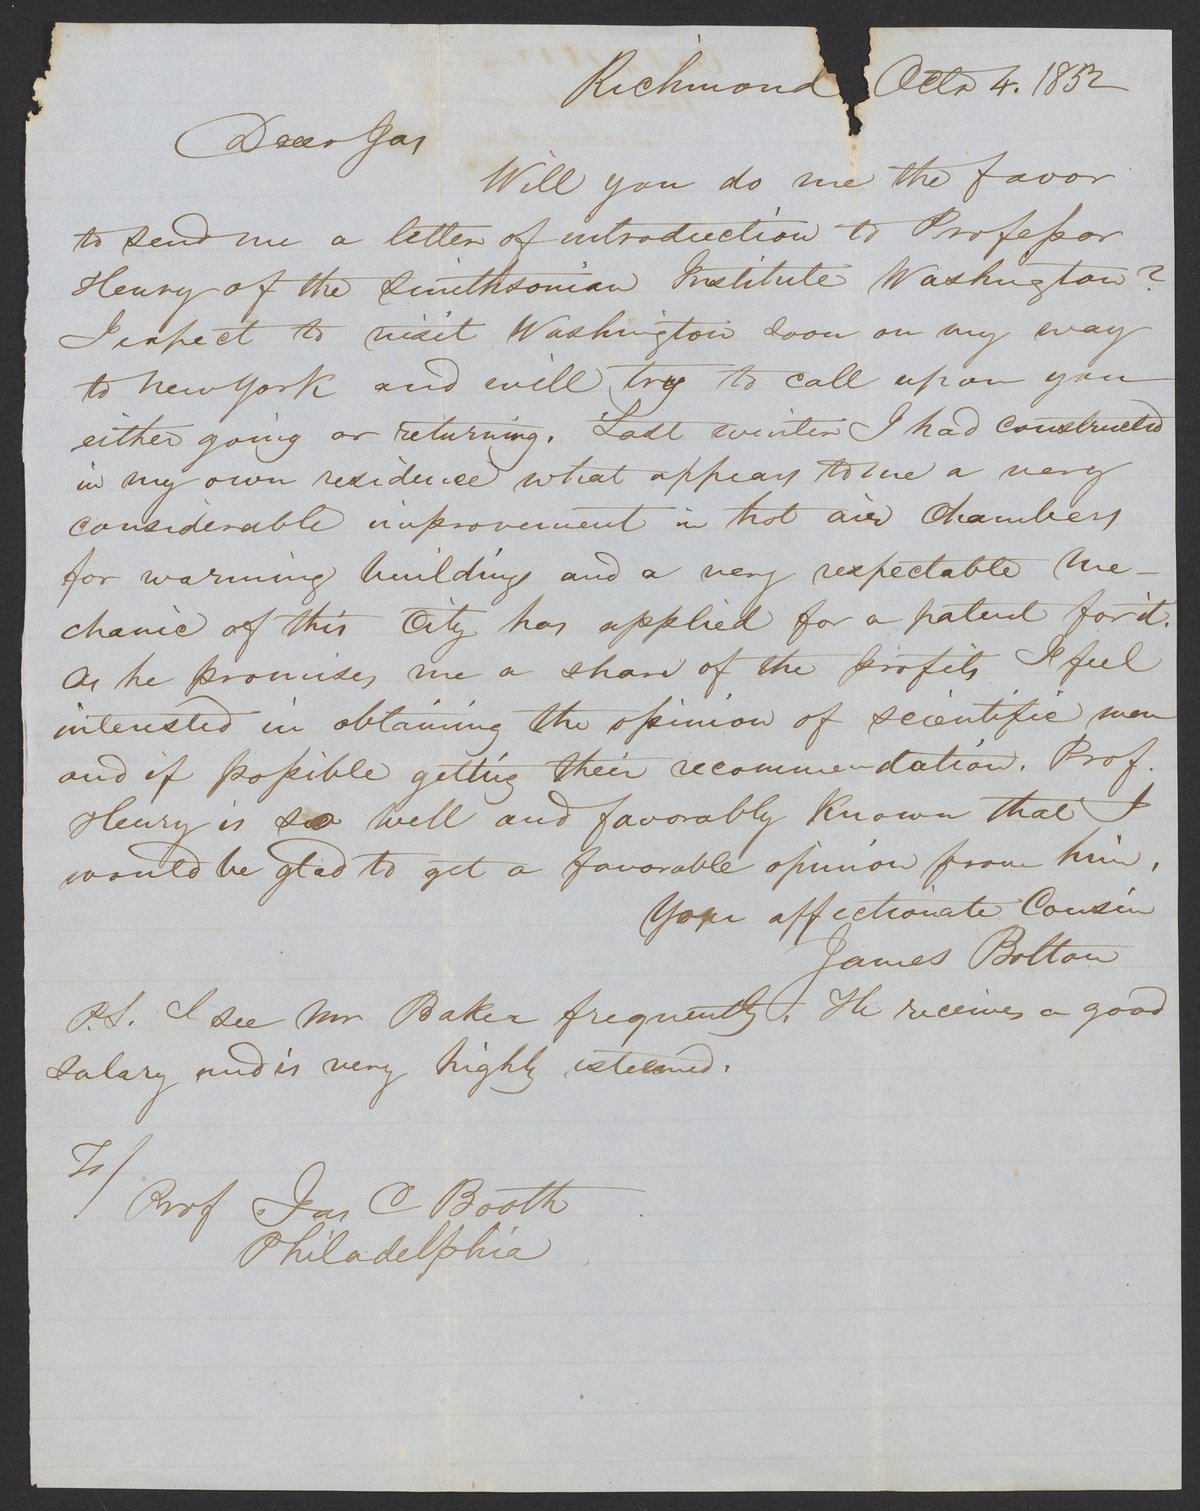 Richmond Octr 4. 1852
Dear Jas
Will you do me the favor
to send me a letter of introduction to Professor
Henry of the Smithsonian Institute Washington?
I expect to visit Washington soon on my way
to New York and will try to call upon you
either going or returning. Last winter I had constructed
in my own residence what appears to me a very
considerable improvement in hot air Chambers
for warming buildings and a very respectable me-
chanic of this City has applied for a patent for it.
As he promises me a share of the profits I feel
interested in obtaining the opinion of scientific men
and if possible getting their recommendation. Prof.
Henry is so well and favorably known that I
would be glad to get a favorable opinion from him.
Your affectionate Cousin
James Bolton
P.S. I see Mr Baker frequently. He receives a good
salary and is very highly esteemed.
To/
Prof Jas C Booth
Philadelphia